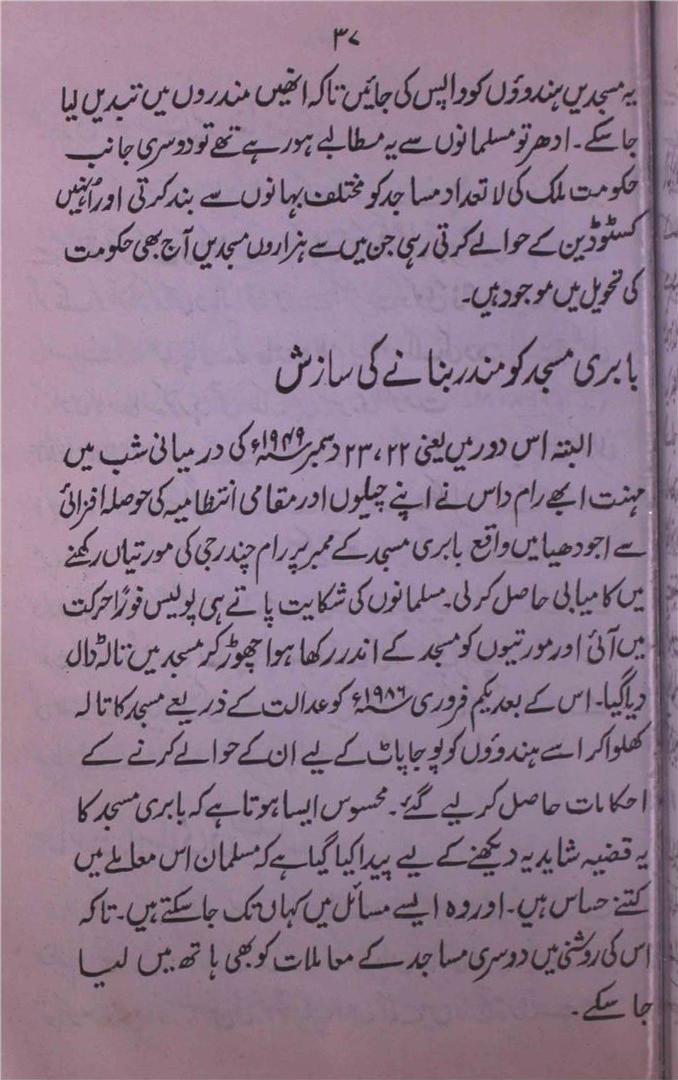 ۳۷
یہ مسجدیں ہندوؤں کو واپس کی جائیں تاکہ انھیں مندروں میں تبدیل کیا
جا سکے۔ ادھر تو مسلمانوں سے یہ مطالبے ہو رہے تھے تو دوسری جانب
حکومت ملک کی لا تعداد مساجد کو مختلف بہانوں سے بند کرتی اور انہیں
کسٹوڈین کے حوالے کرتی رہی جن میں سے ہزاروں مسجدیں آج بھی حکومت
کی تحویل میں موجود ہیں۔
بابری مسجد کو مندر بنانے کی سازش
البتہ اس دور میں یعنی ۲۲، ۲۳ دسمبر ۱۹۴۹ء کی درمیانی شب میں
مہنت ابھے رام داس نے اپنے چیلوں اور مقامی انتظامیہ کی حوصلہ افزائی
سے اجودھیا میں واقع بابری مسجد کے ممبر پر رام چندر جی کی مورتیاں رکھنے
میں کامیابی حاصل کر لی۔ مسلمانوں کی شکایت پاتے ہی پولیس فوراً حرکت
میں آئی اور مورتیوں کو مسجد کے اندر رکھا ہوا چھوڑ کر مسجد میں تالہ ڈال
دیا گیا۔ اس کے بعد یکم فروری ۱۹۸۶ء کو عدالت کے ذریعے مسجد کا تالہ
کھلوا کر اسے ہندوؤں کو پوجا پاٹ کے لیے ان کے حوالے کرنے کے
احکامات حاصل کر لیے گئے۔ محسوس ایسا ہوتا ہے کہ بابری مسجد کا
یہ قضیہ شاید یہ دیکھنے کے لیے پیدا کیا گیا ہے کہ مسلمان اس معاملے میں
کتنے حساس ہیں۔ اور وہ ایسے مسائل میں کہاں تک جا سکتے ہیں۔ تاکہ
اس کی روشنی میں دوسری مساجد کے معاملات کو بھی ہاتھ میں لیا
جا سکے۔